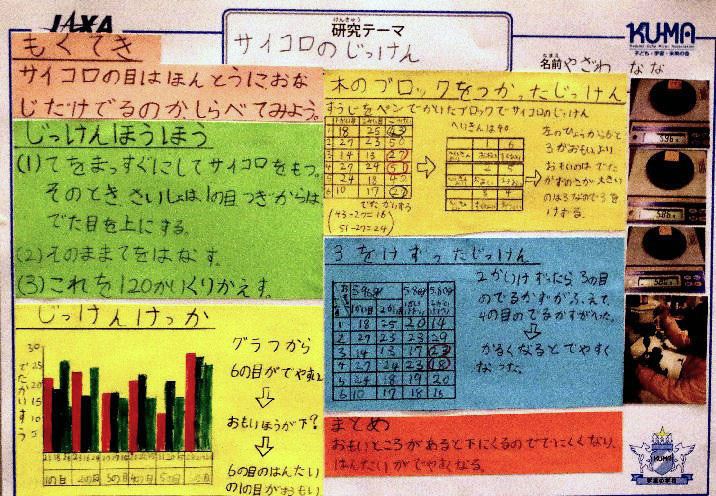 JAXA
研究テーマ
けんきゅう
サイコロのじっけん
KUMA
子ども・宇宙・未来の会
名前 やざわ なな
なまえ
もくてき
サイコロの目はほんとうにおな
じだけでるのか、しらべてみよう。
じっけんほうほう
(1)てをまっすぐにしてサイコロをもつ。
そのとき さいしょは1の目 つぎからは
でた目を上にする。
(2)そのままてをはなす。
(3)これを120かいくりかえす。
じっけんけっか
でたかいすう
30
25
20
15
10
5
0
1の目 2の目 3の目 4の目
グラフから
6の目がでやすい
おもいほうが下?
6の目のはんたい
の1の目がおもい
木のブロックをつかったじっけん
すうじをペンでかいたブロックでサイコロのじっけん
1 18 25 43
2 27 23 50
3 14 13 27
4 27 24 51
5 24 18 42
6 10 17 27
でたかいすう
(43-27=16)
51-27=24)
3をけずったじっけん
1 18 25 20 14
2 27 23 23 29
3 14 13 17 23
4 27 24 23 18
5 24 18 19 20
6 10 17 18 16
2かいけずったら3の目
のでるかずがふえて、
4の目のでるかずがへった。
かるくなるとでやすく
なった。
まとめ
おもいところがあると下にくるのででにくくなり、
はんたいがでやすくなる。
KUMA